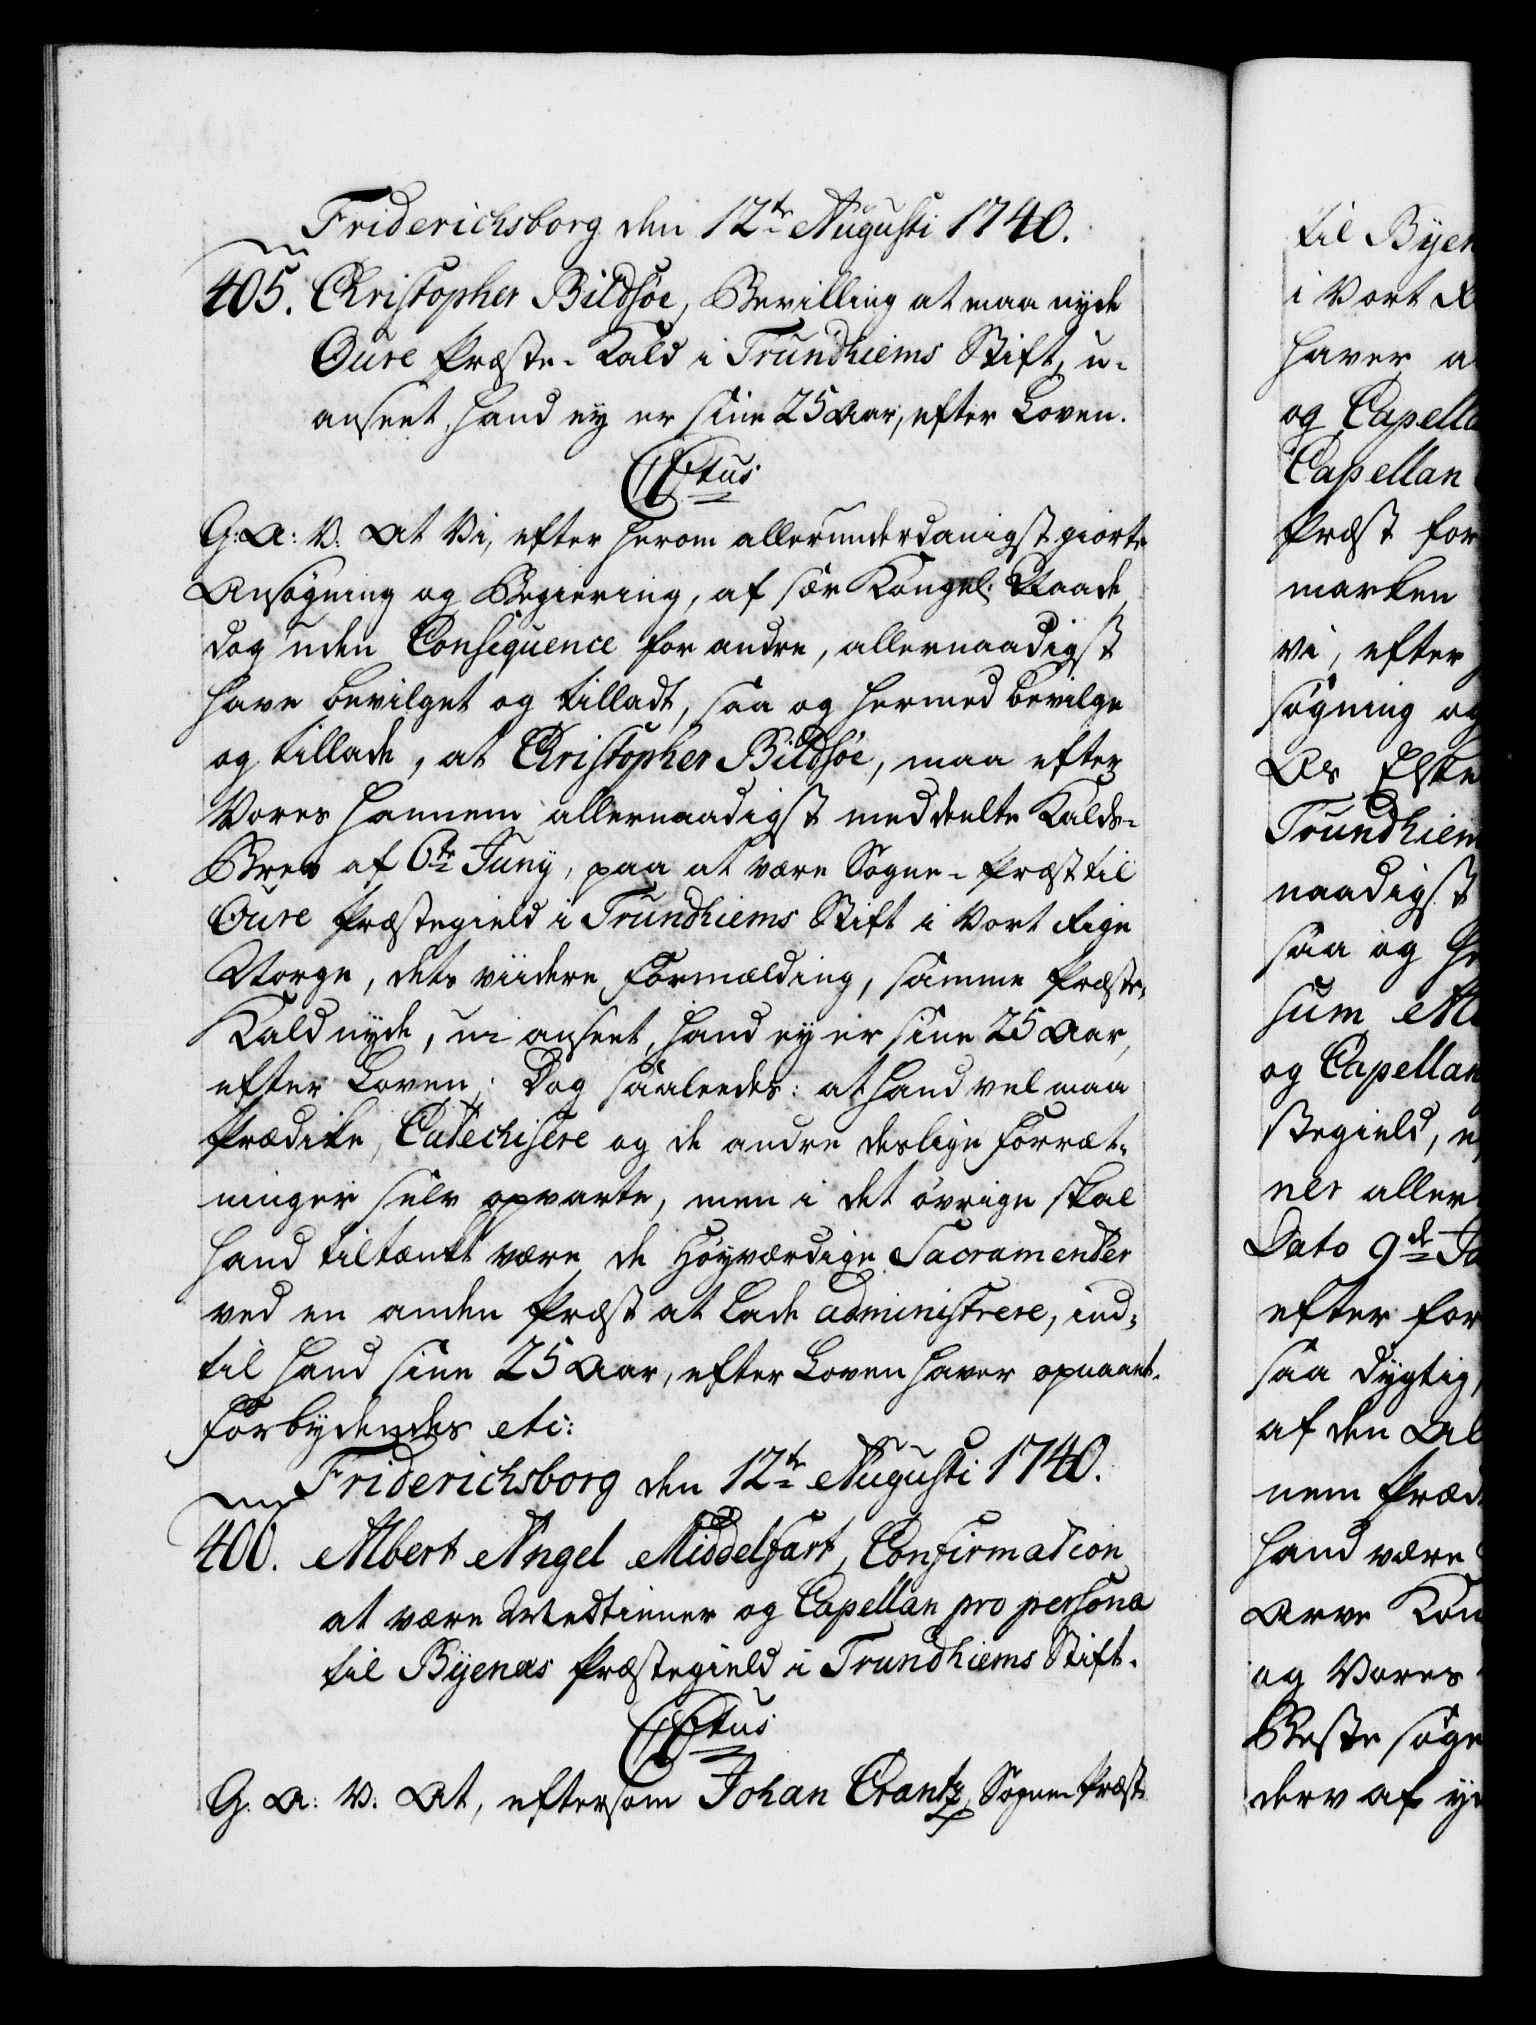 Friderichsborg den 12te Augusti 1740.
405. Christopher Bildsöe, Bevilling at maa nyde
Oure Præste-Kald i Trundhiems Stift, u-
anseet, hand ey er sine 25 Aar, efter Loven.
C 6tus
G: A: V. At Vi, efter herom allerunderdanigst giorte
Ansøgning og Begiering, af sær Kongel: Naade,
dog uden Consequence for andre, allernaadigst
have bevilget og tilladt, saa og hermed bevilge
og tillade, at Christopher Bildsöe, maa efter
Vores hannem allernaadigst meddeelte Kalds-
Brev af 6te Junÿ, paa at være Sogne-Præst til
Oure Præstegield i Trundhiems Stift i Vort Rige
Norge, dets viidere Formælding, samme Præste-
Kald nyde, u-anseet, hand ey er sine 25 Aar,
efter Loven; Dog saaleedes: at hand vel maa
Prædike, Catechisere og de andre deslige Forræt-
ninger selv opvarte, men i det övrige skal
hand tiltænkt være de Høyværdige Sacramenter
ved en anden Præst at lade administrere, ind-
til hand sine 25 Aar, efter Loven haver opnaaet.
Forbydendes etc:
Friderichsborg den 12te Augusti 1740.
406. Albert Angel Middelfart, Confirmation
at være Medtiener og Capellan pro persona
til Bÿenæs Præstegield i Trundhiems Stift.
C 6tus
G: A: V: At, eftersom Johan Crantz, Sogne-Præst
til Byen
i Vort R
haver a
og Capella
Capellan
Præst for
marken
vi, efter
søgning og
Os Elske
Trundhiem
naadigst
saa og he
sum, At
og Capellan
stegield, e
nes aller
Dato 9de Ja
efter for
saa dygtig,
af den Al
nem Præd
hand være
Arve Kon
og Vores
Beste søge
derv af y